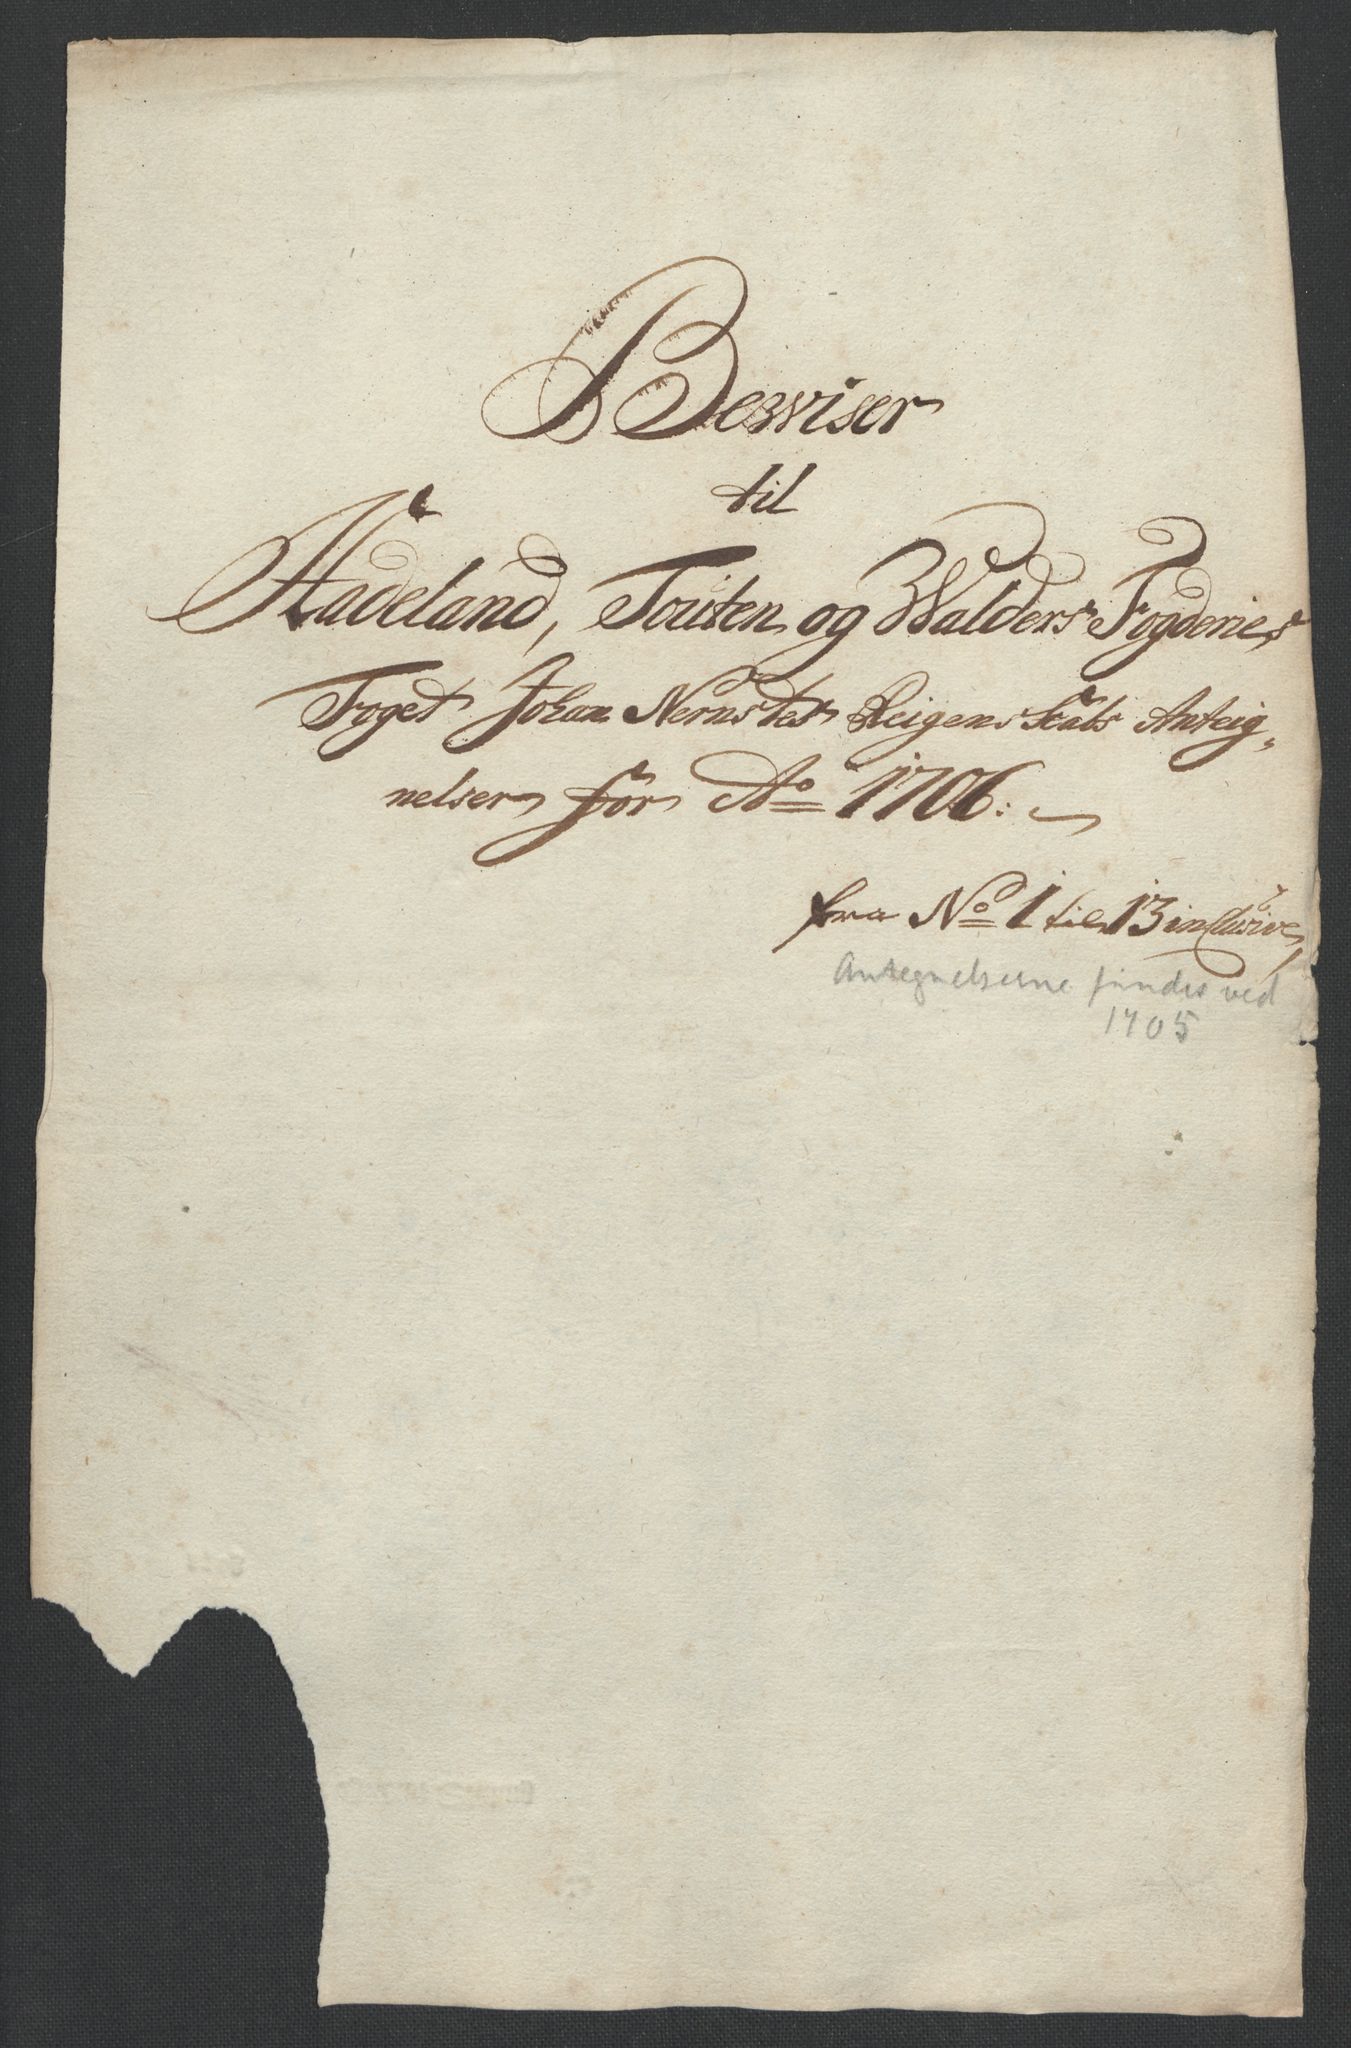 Bewiser
til
Hadeland, Touten og Walders Fogderies
Foget Johan Nernstes Reigenskabs Anteig„
nelser for Ao 1706:
fra No 1 til 13 inclusive,
Antegnelserne findes ved
1705